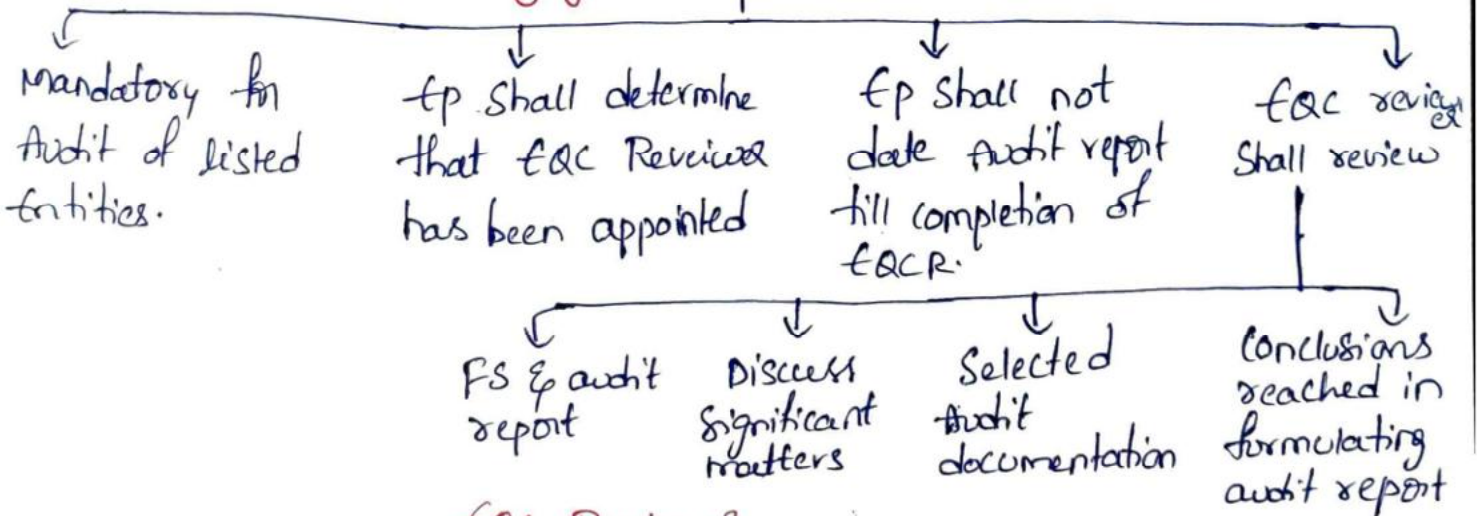 Mandatory for
Audit of listed
Entities.
Ep Shall determine
that EQC Reveiwer
has been appointed
Ep Shall not
date Audit report
till completion of
EQCR.
EQC reviewer
Shall review
FS & audit
report
Discuss
Significant
matters
Selected
Audit
documentation
Conclusions
reached in
formulating
audit report